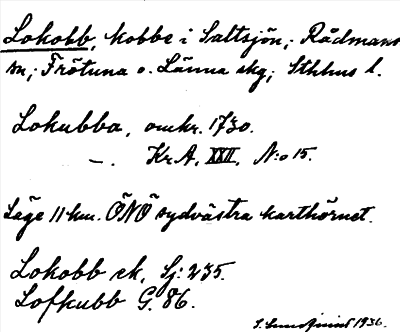 Lokobb, kobbe i Saltsjön; Rådmans
sn; Frötuna o. Länna skg; Sthlms l.
Lokubba, omkr. 1730.
—. Kr.A. XXII, N:o 15.
Läge 11 km. ÖNÖ sydvästra karthörnet.
Lokobb ek. Sj: 235.
Lofkubb G. 86.
1936.